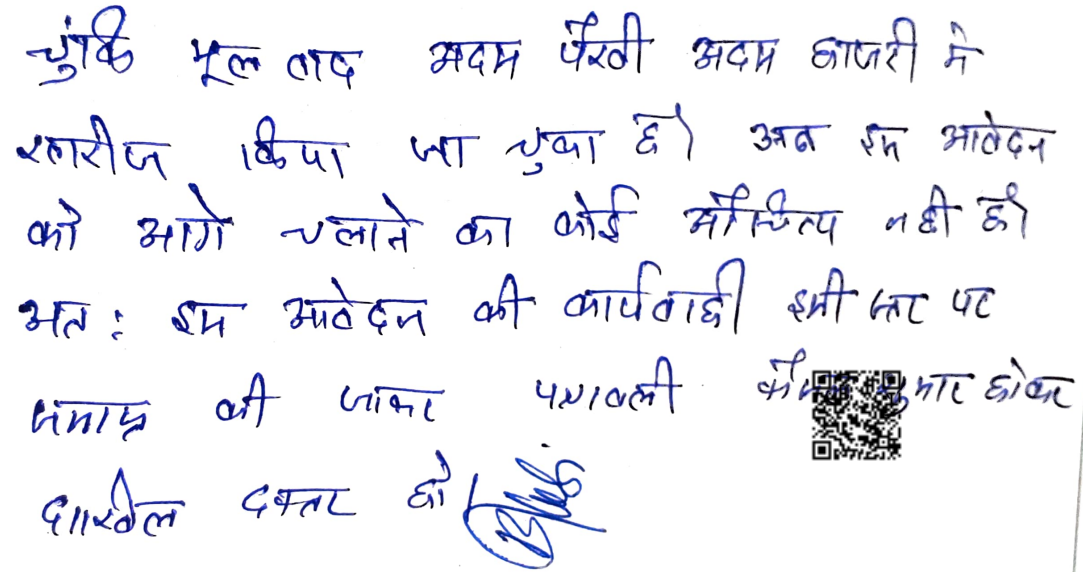 चुंकि मूल वाद अदम पैरवी अदम हाजरी मे
खारीज किया जा चुका है। अब इस आवेदन
को आगे चलाने का कोई औचित्य नही है।
अतः इस आवेदन की कार्यवाही इसी स्तर पर
समाप्त की जाकर पत्रावली फैसल शुमार होकर
दाखिल दफ्तर हो।